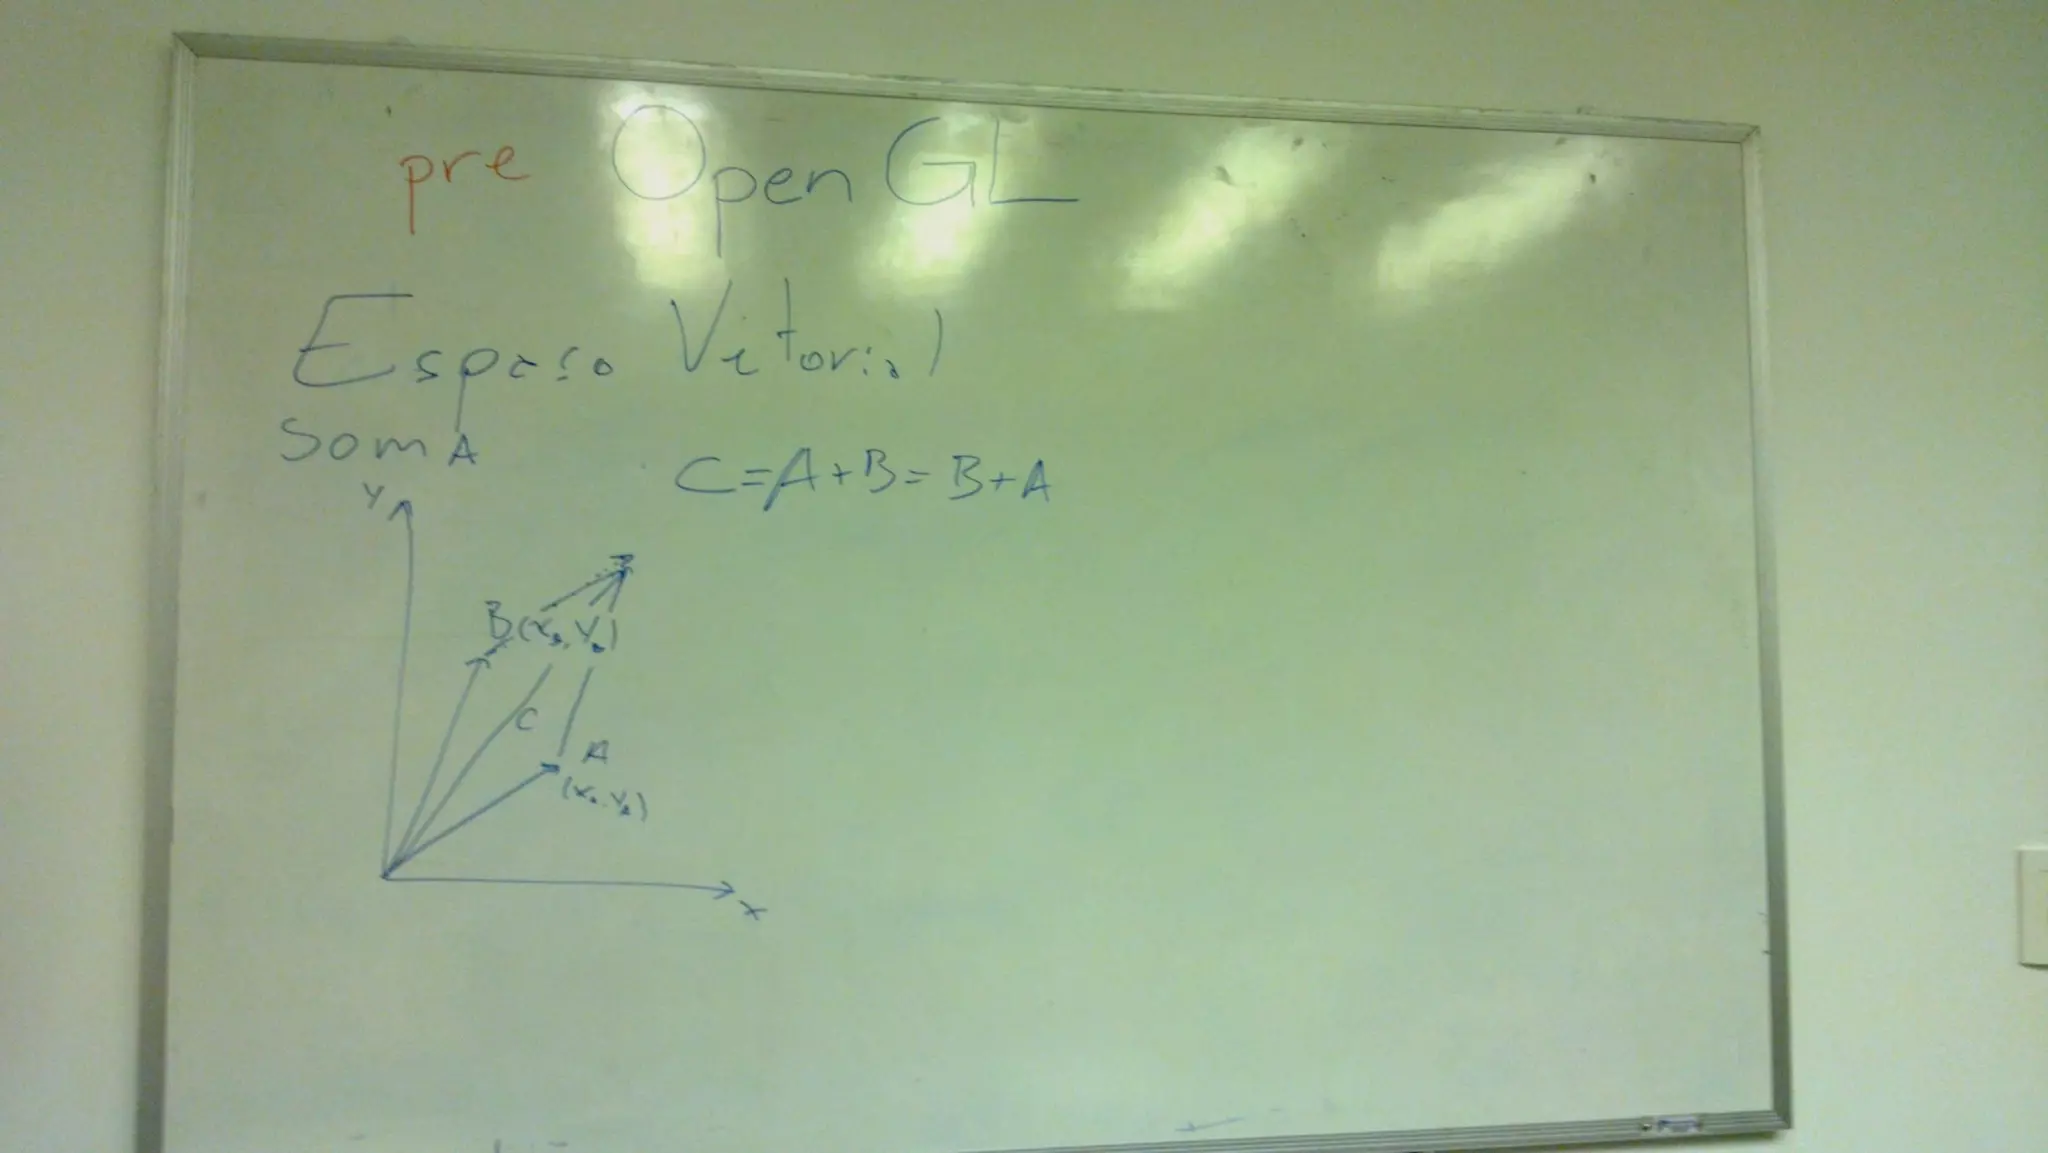 pre OpenGL
Espaço Vetorial
Soma
C=A+B=B+A
Y
B(
C
A
X